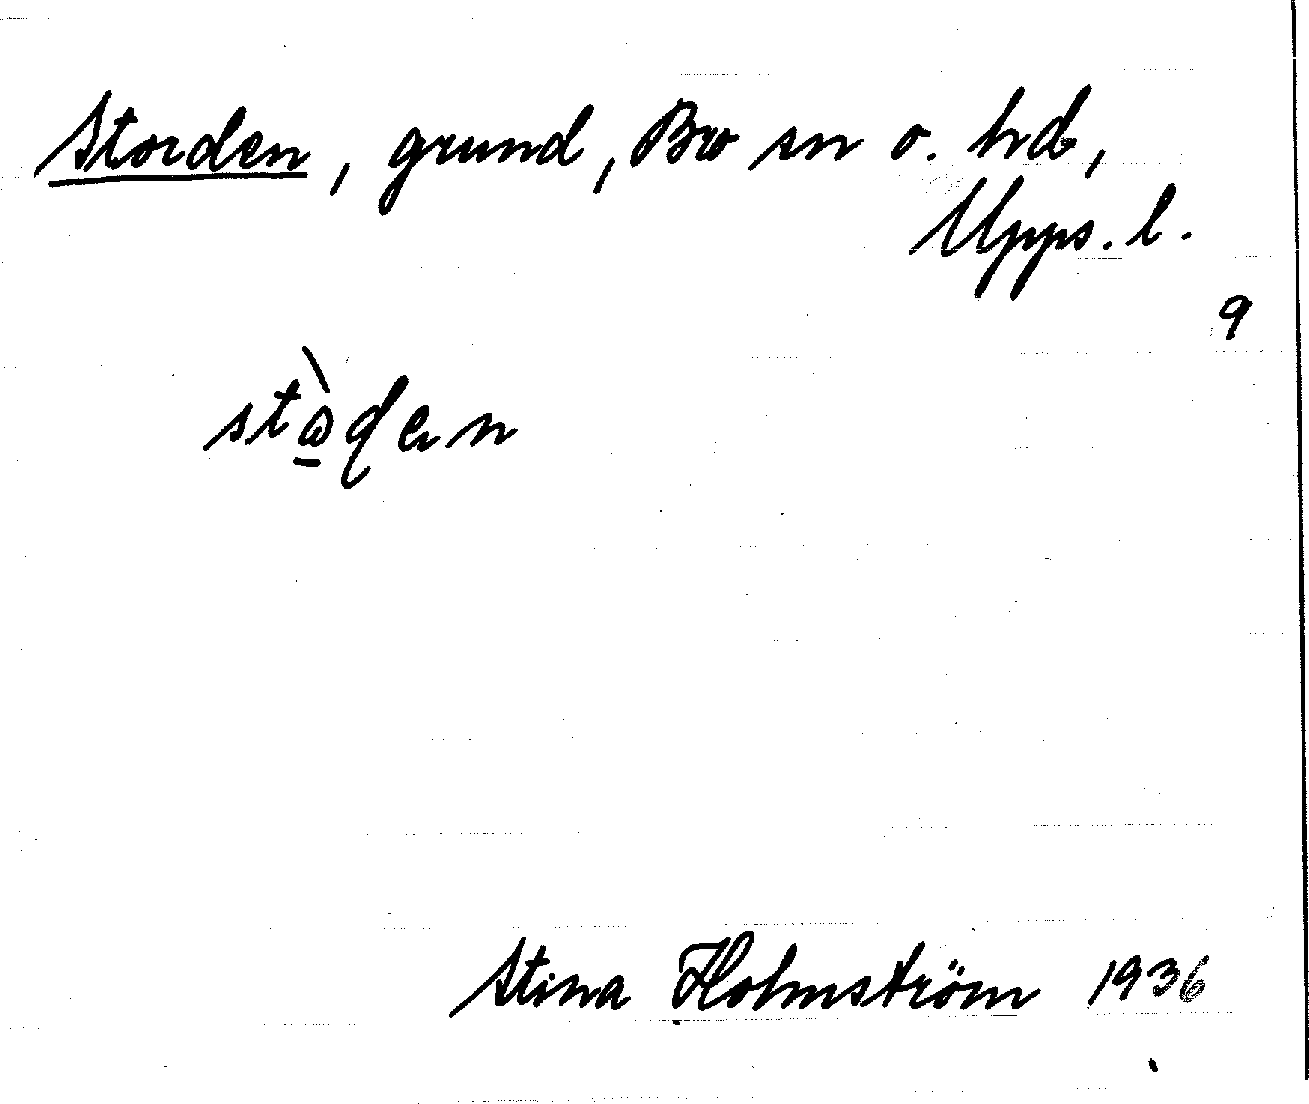 Storden, grund, Bro sn o. hd,
Upps. l.
9
Stina Holmström 1936